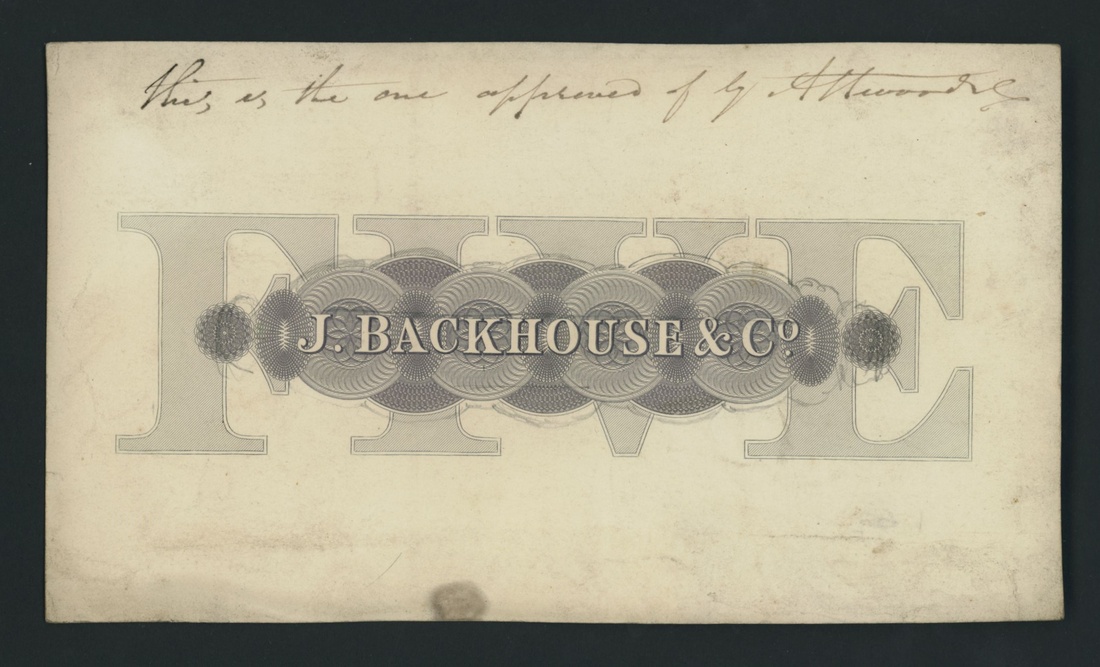 this is the one approved of by Attwood &c
FIVE
J. BACKHOUSE & Co.